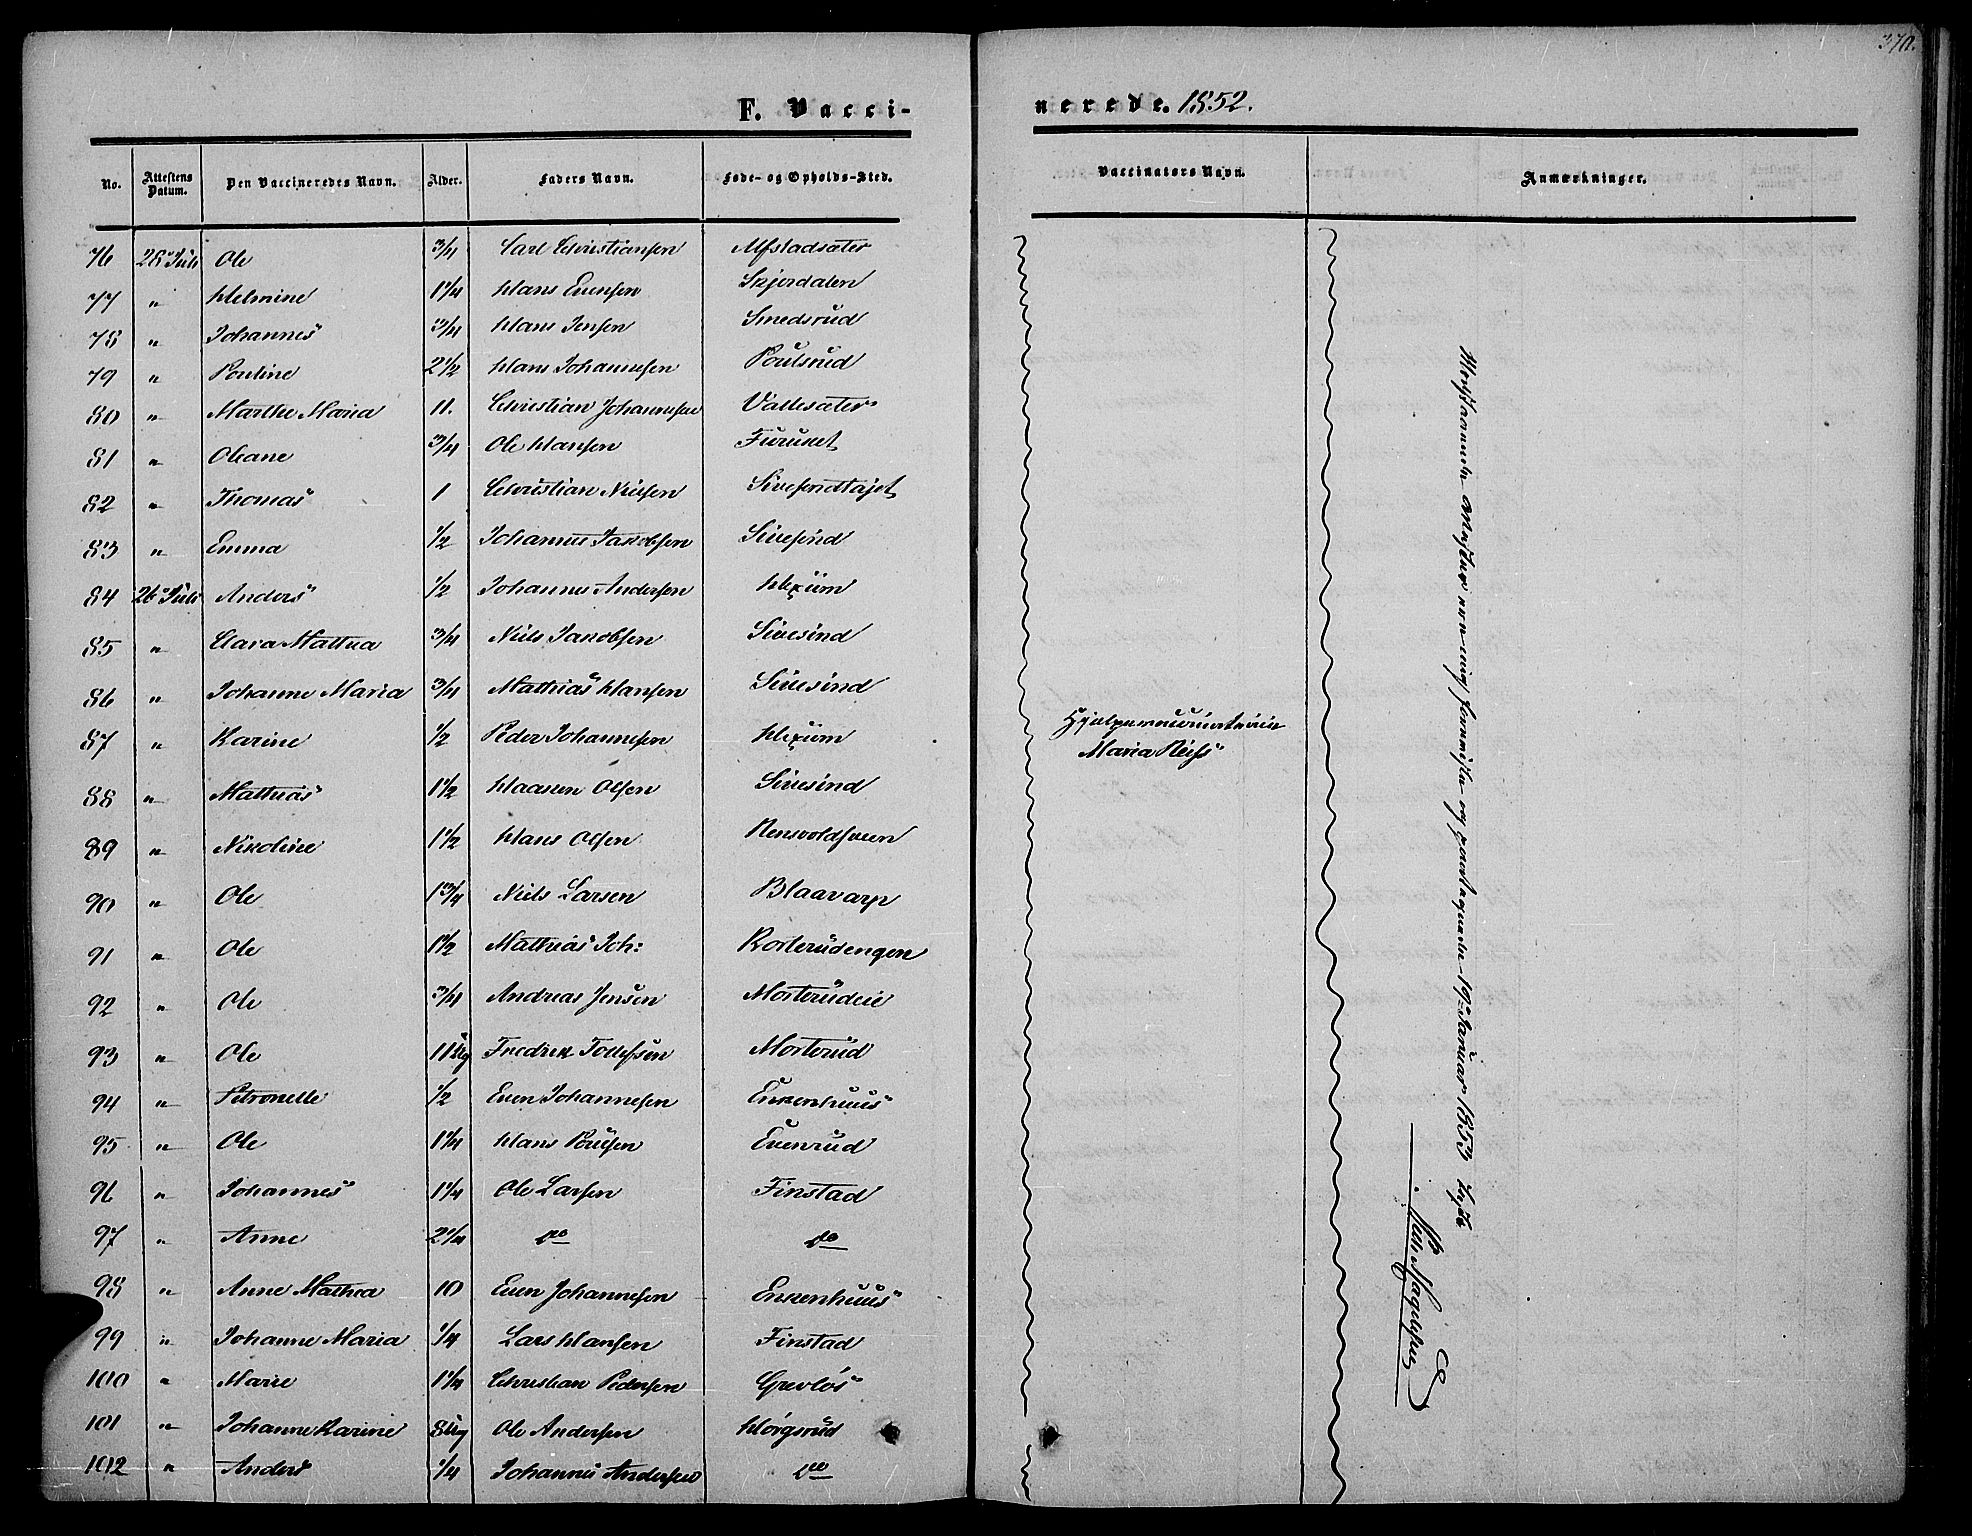 370.
F. Vacci-
nerede. 1852.
No. Attestens Datum. Den Vaccineredes Navn. Alder. Faders Navn. Føde- og Opholds-Sted. Vaccinators Navn. Anmærkninger.
76 28 Juli Ole 3/4 Carl Christiansen Alfstadsæter
77 " Helmine 1 1/4 Hans Evensen Skjerdalen
78 " Johannes 3/4 Hans Jensen Smedsrud
79 " Pouline 2 1/2 Hans Johannesen Poulsrud
80 " Marthe Maria 11. Christian Johannesen Vallesæter
81 " Oleane 3/4 Ole Hansen Furuset
82 " Thomas 1 Christian Nielsen
83 " Emma 1/2 Johannes Jakobsen Sivesind
84 26 Juli Anders 1/2 Johannes Andersen
85 " Clara Mathea 3/4 Niels Jakobsen Sivesind
86 " Johanne Maria 3/4 Mathias Hansen Sivesind
87 " Karine 1/2 Peder Johannesen
88 " Mathias 1 1/2 Haagen Olsen Sivesind
89 " Nikoline 1 1/2 Hans Olsen
90 " Ole 1 3/4 Niels Larsen Blaavarp
91 " Ole 1 1/2 Mathias Joh: Korterudengen
92 " Ole 3/4 Andreas Jensen Morterudeie
93 " Ole 11 Fredrik Tollefsen Morterud
94 " Petronelle 1/2 Even Johannesen Enkenhuus
95 " Ole 1 1/4 Hans Poulsen Evenrud
96 " Johannes 1 1/4 Ole Larsen Finstad
97 " Anne 2 1/4 do do
98 " Anne Mathea 10 Even Johannesen Enkenhuus
99 " Johanne Maria 1/4 Lars Hansen Finstad
100 " Marie 1 1/4 Christian Pedersen Grevlös
101 " Johanne Karine 8 Ole Andersen
102 " Anders 1/4 Johannes Andersen do
Maria
19 Januar 1853